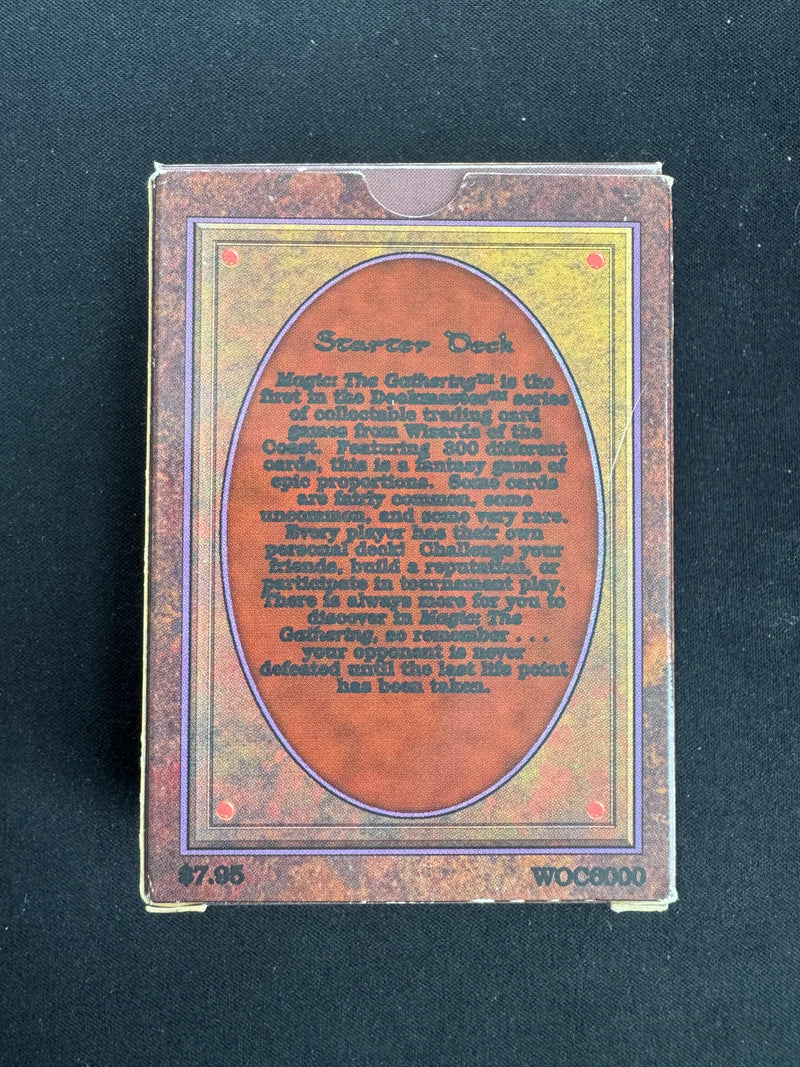 Starter Deck
Magic: The Gathering™ is the
first in the Deckmaster™ series
of collectable trading card
games from Wizards of the
Coast. Featuring 300 different
cards, this is a fantasy game of
epic proportions. Some cards
are fairly common, some
uncommon, and some very rare.
Every player has their own
personal deck! Challenge your
friends, build a reputation, or
participate in tournament play.
There is always more for you to
discover in Magic: The
Gathering, so remember . . .
your opponent is never
defeated until the last life point
has been taken.
$7.95 WOC6000